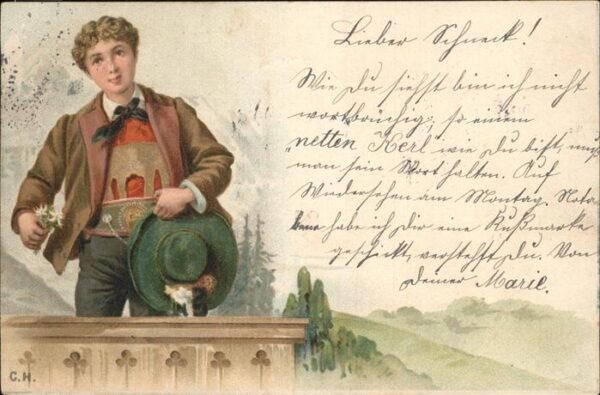 Lieber Schneck!
Wie Du siehst bin ich nicht
wortbrüchig, so einem
„netten Kerl“ wie Du bist, muß
man sein Wort halten. Auf
Wiedersehen am Montag. Nota
bene habe ich dir eine Kußmarke
geschickt, verstehst Du. Von
Deiner Marie.
C.H.